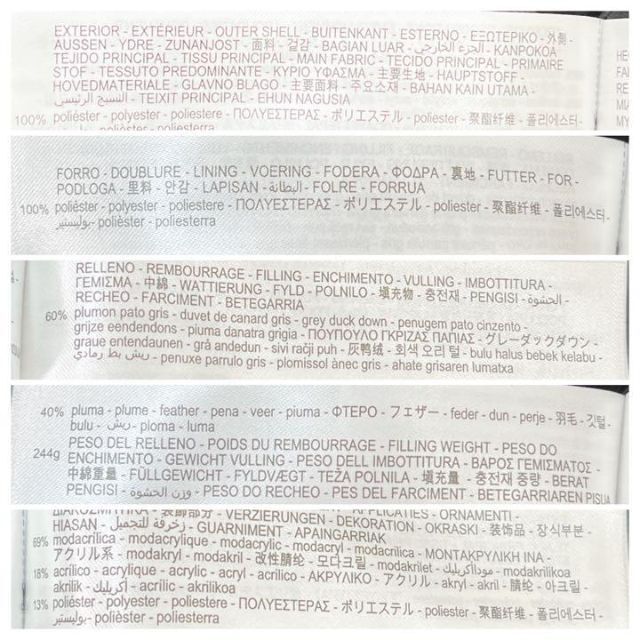 EXTERIOR - EXTÉRIEUR - OUTER SHELL - BUITENKANT - ESTERNO - ΕΞΩΤΕΡΙΚΟ - 外側 -
AUSSEN - YDRE - ZUNANJOST - 面料 - 겉감 - BAGIAN LUAR - الجزء الخارجي - KANPOKOA
TEJIDO PRINCIPAL - TISSU PRINCIPAL - MAIN FABRIC - TECIDO PRINCIPAL - PRIMAIRE
STOF - TESSUTO PREDOMINANTE - ΚΥΡΙΟ ΥΦΑΣΜΑ - 主要生地 - HAUPTSTOFF -
HOVEDMATERIALE - GLAVNO BLAGO - 主要面料 - 주요소재 - BAHAN KAIN UTAMA -
النسيج الرئيسي - TEIXIT PRINCIPAL - EHUN NAGUSIA
100% poliéster - polyester - poliestere - ΠΟΛΥΕΣΤΕΡΑΣ - ポリエステル - poliester - 聚酯纤维 - 폴리에스터 -
FORRO - DOUBLURE - LINING - VOERING - FODERA - ΦΟΔΡΑ - 裏地 - FUTTER - FOR -
PODLOGA - 里料 - 안감 - LAPISAN - البطانة - FOLRE - FORRUA
100% poliéster - polyester - poliestere - ΠΟΛΥΕΣΤΕΡΑΣ - ポリエステル - poliester - 聚酯纤维 - 폴리에스터 -
بوليستير - polièster - poliesterra
RELLENO - REMBOURRAGE - FILLING - ENCHIMENTO - VULLING - IMBOTTITURA -
ΓΕΜΙΣΜΑ - 中綿 - WATTIERUNG - FYLD - POLNILO - 填充物 - 충전재 - PENGISI - الحشوة -
RECHEO - FARCIMENT - BETEGARRIA
60% plumon pato gris - duvet de canard gris - grey duck down - penugem pato cinzento -
grijze eendendons - piuma danatra grigia - ΠΟΥΠΟΥΛΟ ΓΚΡΙΖΑΣ ΠΑΠΙΑΣ - グレーダックダウン -
graue entendaunen - grå andedun - sivi račji puh - 灰鸭绒 - 회색 오리 털 - bulu halus bebek kelabu -
ريش بط رمادي - penuxe parrulo gris - plomissol ànec gris - ahate grisaren lumatxa
40% pluma - plume - feather - pena - veer - piuma - ΦΤΕΡΟ - フェザー - feder - dun - perje - 羽毛 - 깃털 -
bulu - ريش - ploma - luma
244g PESO DEL RELLENO - POIDS DU REMBOURRAGE - FILLING WEIGHT - PESO DO
ENCHIMENTO - GEWICHT VULLING - PESO DELL IMBOTTITURA - ΒΑΡΟΣ ΓΕΜΙΣΜΑΤΟΣ -
中綿重量 - FÜLLGEWICHT - FYLDVÆGT - TEŽA POLNILA - 填充量 - 충전재 중량 - BERAT
PENGISI - وزن الحشوة - PESO DO RECHEO - PES DEL FARCIMENT - BETEGARRIAREN PISUA
装飾部分 - VERZIERUNGEN - APPLICATIES - ORNAMENTI -
HIASAN - زخرفة للتجميل - GUARNIMENT - APAINGARRIAK - DEKORATION - OKRASKI - 装饰品 - 장식부분 -
69% modacrílica - modacrylique - modacrylic - modacryl - modacrilica - ΜΟΝΤΑΚΡΥΛΙΚΗ ΙΝΑ -
アクリル系 - modakryl - modakril - 改性腈纶 - 모다크릴 - modakrilet - موداأكريليك - modakrilikoa
18% acrílico - acrylique - acrylic - acryl - acrilico - ΑΚΡΥΛΙΚΟ - アクリル - akryl - akril - 腈纶 - 아크릴 -
akrilik - أكريليك - acrílic - akrilikoa
13% poliéster - polyester - poliestere - ΠΟΛΥΕΣΤΕΡΑΣ - ポリエステル - poliester - 聚酯纤维 - 폴리에스터 -
بوليستير - polièster - poliesterra